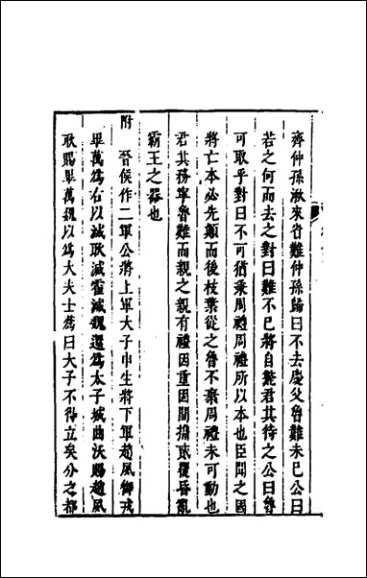 齊仲孫湫來省難仲孫歸曰不去慶父魯難未已公曰
若之何而去之對曰難不已將自斃君其待之公曰魯
可取乎對曰不可猶秉周禮周禮所以本也臣聞之國
將亡本必先顛而後枝葉從之魯不棄周禮未可動也
君其務寧魯難而親之親有禮因重固間攜貳覆昏亂
霸王之器也
附 晉侯作二軍公將上軍大子申生將下軍趙夙御戎
畢萬為右以滅耿滅霍滅魏還為太子城曲沃賜趙夙
耿賜畢萬魏以為大夫士蒍曰大子不得立矣分之都